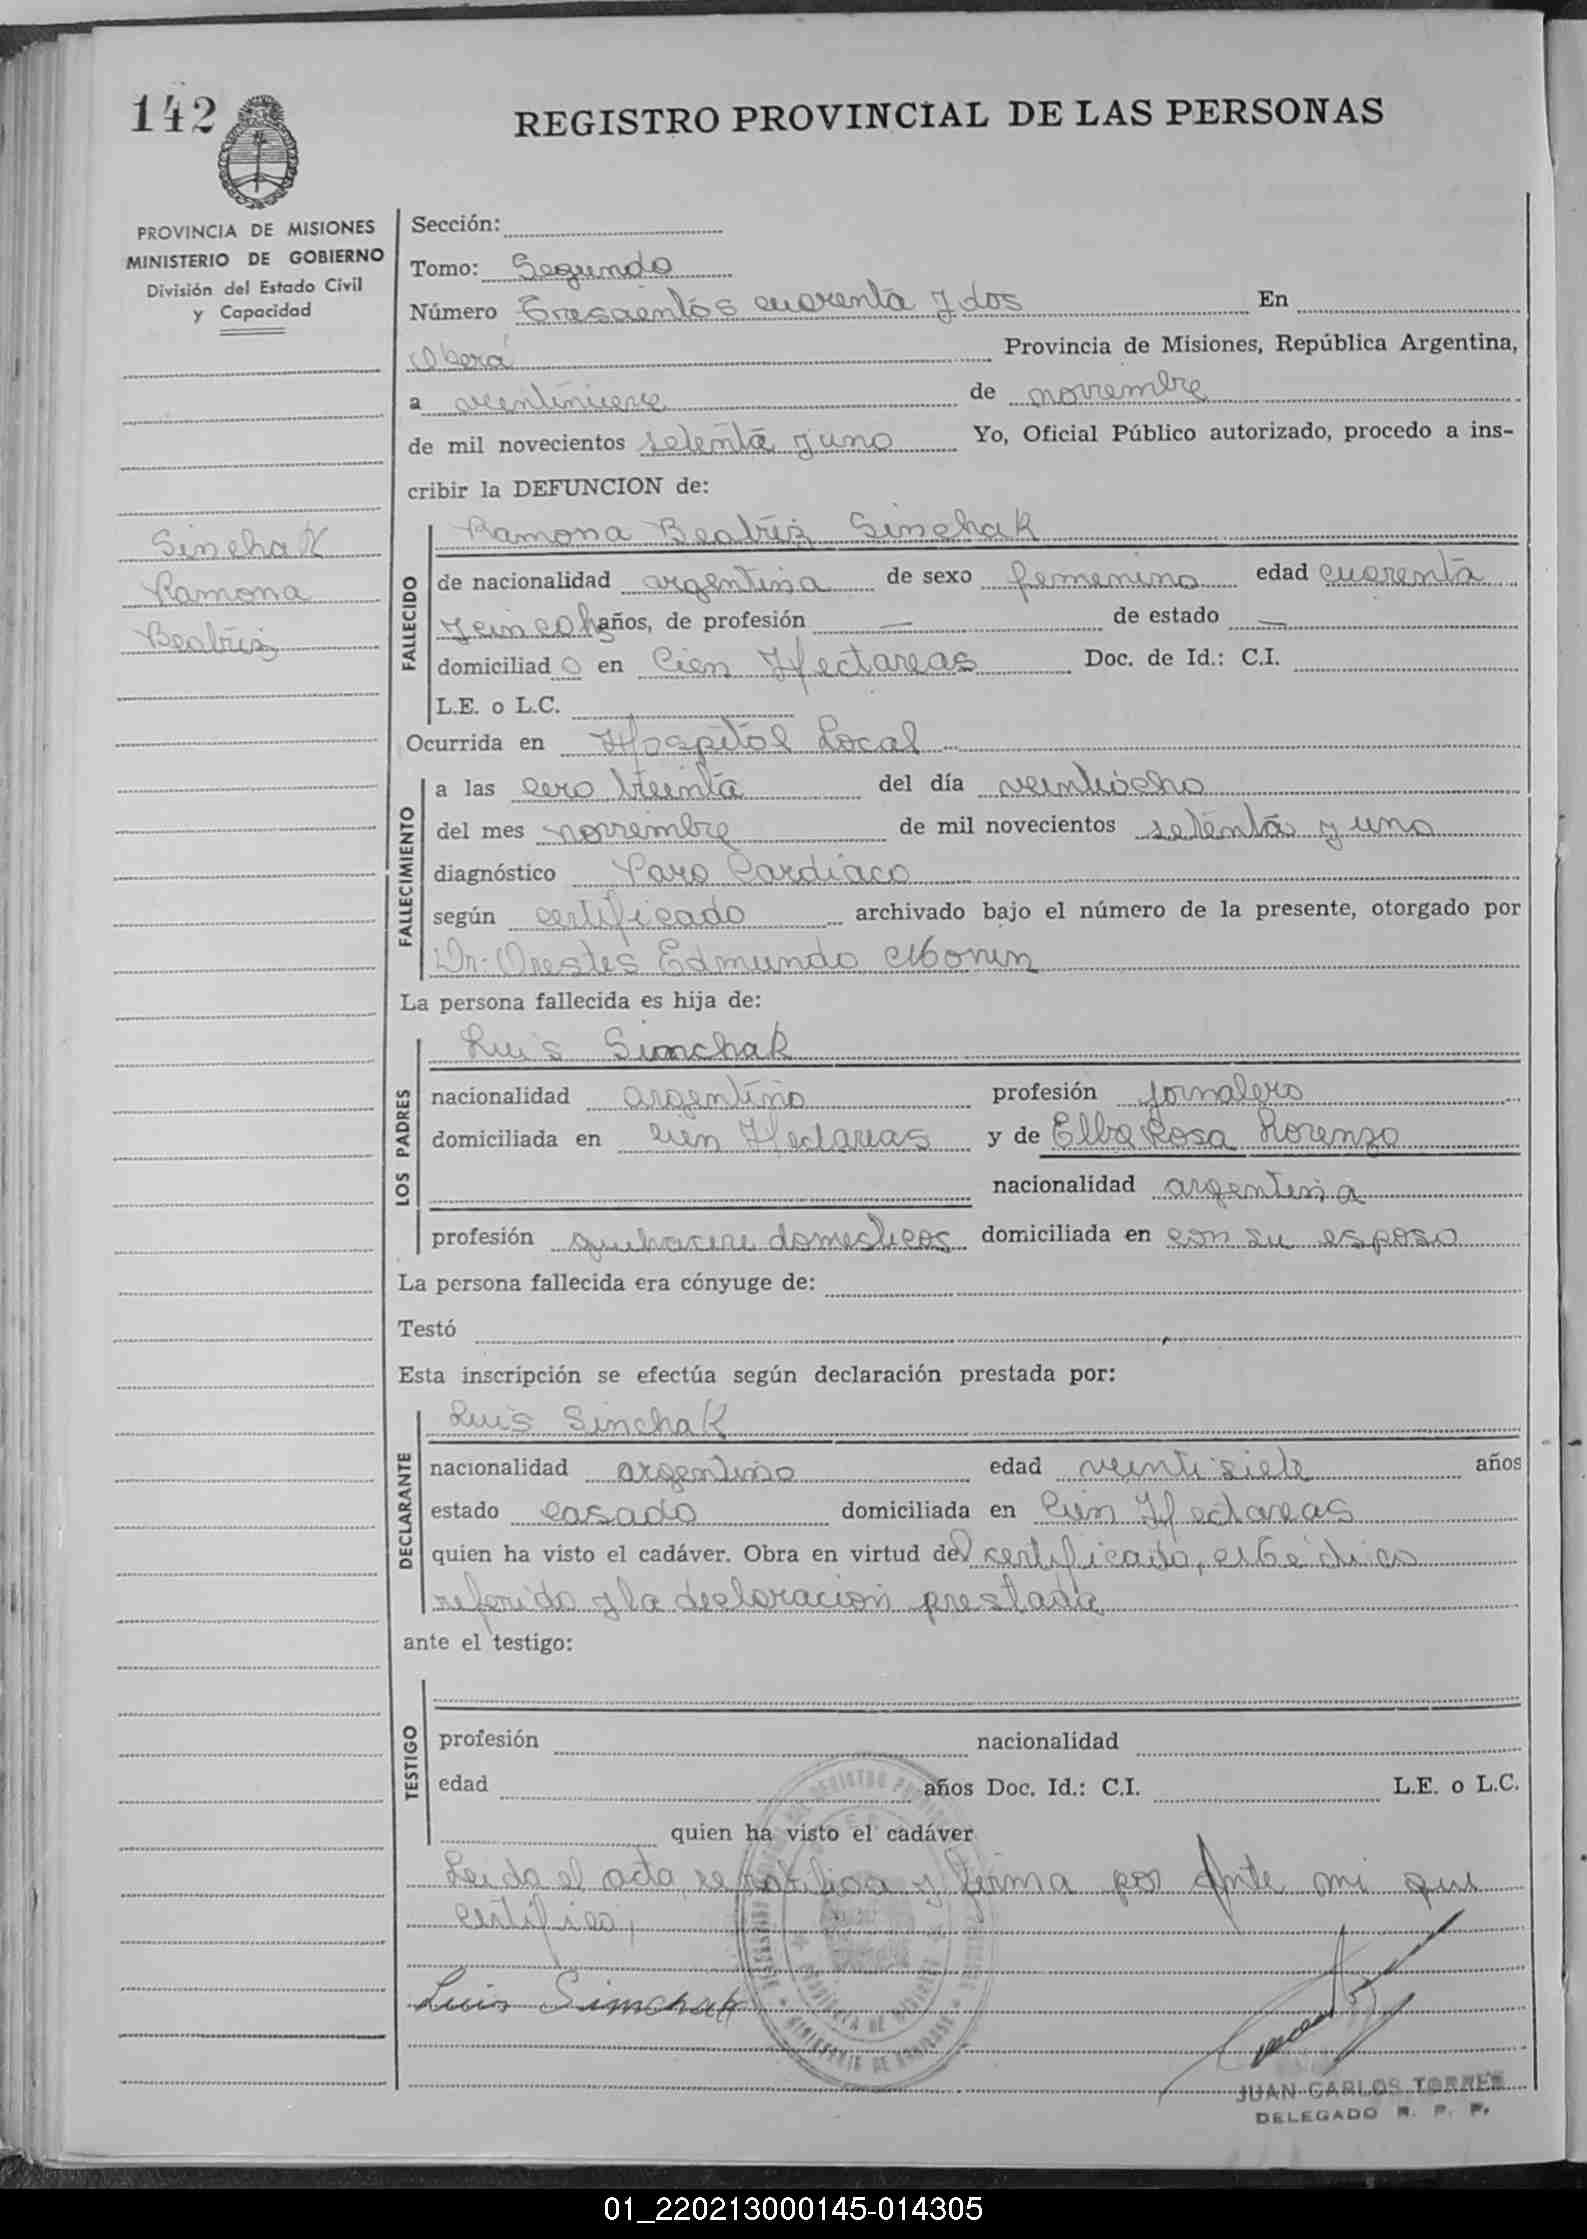 142
REGISTRO PROVINCIAL DE LAS PERSONAS
PROVINCIA DE MISIONES
MINISTERIO DE GOBIERNO
División del Estado Civil
y Capacidad
Sinchak
Ramona
Beatriz
Sección:
Tomo: Segundo
Número Trescientos cuarenta y dos En
Oberá Provincia de Misiones, República Argentina,
a veintinueve de noviembre
de mil novecientos setenta y uno Yo, Oficial Público autorizado, procedo a ins-
cribir la DEFUNCION de:
FALLECIDO
Ramona Beatriz Sinchak
de nacionalidad argentina de sexo femenino edad cuarenta
y cinco años, de profesión — de estado —
domiciliado en Cien Hectareas Doc. de Id.: C.I.
L.E. o L.C.
Ocurrida en Hospital Local
FALLECIMIENTO
a las cero treinta del día veintiocho
del mes noviembre de mil novecientos setenta y uno
diagnóstico Paro Cardiaco
según certificado archivado bajo el número de la presente, otorgado por
Dr. Orestes Edmundo Monin
La persona fallecida es hija de:
LOS PADRES
Luis Simchak
nacionalidad argentino profesión jornalero
domiciliada en Cien Hectareas y de Elba Rosa Lorenzo
nacionalidad argentina
profesión domesticos domiciliada en con su esposo
La persona fallecida era cónyuge de:
Testó
Esta inscripción se efectúa según declaración prestada por:
DECLARANTE
Luis Sinchak
nacionalidad argentino edad veintisiete años
estado casado domiciliada en Cien Hectareas
quien ha visto el cadáver. Obra en virtud del certificado, médico
referido y la declaración prestada
ante el testigo:
TESTIGO
profesión nacionalidad
edad años Doc. Id.: C.I. L.E. o L.C.
quien ha visto el cadáver
Leida el acta, se ratifica y firma por ante mi que
certifico,
Luis Simchak
JUAN CARLOS TORRES
DELEGADO R. P. P.
01_220213000145-014305